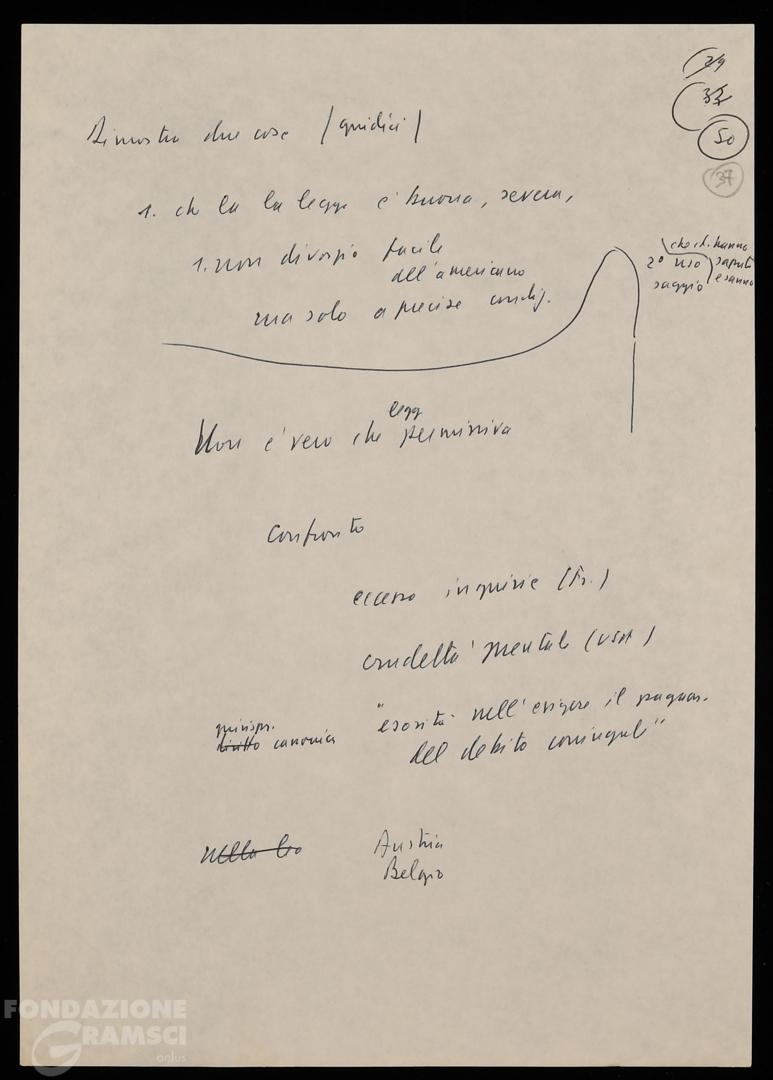 29
32
50
37
Dimostra due cose (giudici)
1. che la la legge è buona, severa,
1. non divorzio facile
all'americana
ma solo a precise condiz.
che cit. hanno
2° uso saputo
saggio e sanno
legge
Non è vero che permissiva
Confronto
eccesso ingiurie (Fr.)
crudeltà mentale (USA)
giurispr.
diritto canonica
" esosità nell'esigere il pagam.
del debito coniugale"
nella le
Austria
Belgio
FONDAZIONE
GRAMSCI
onlus